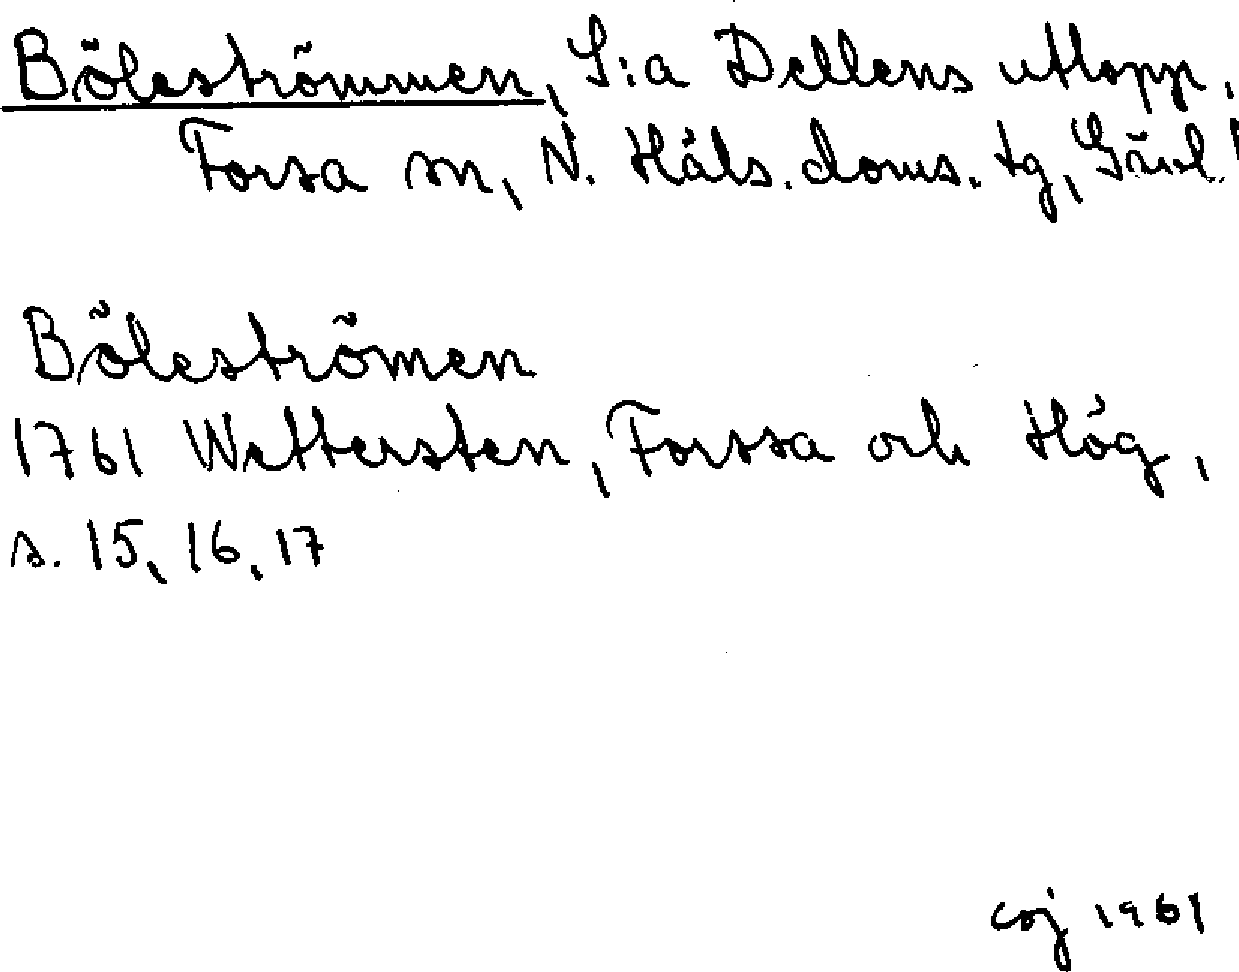 Böleströmmen, S:a Dellens utlopp,
Forsa sn, N. Häls. doms. tg, Gävl.
Böleströmen
1761 Wettersten, Forssa och Hög,
s. 15, 16, 17
coj 1961